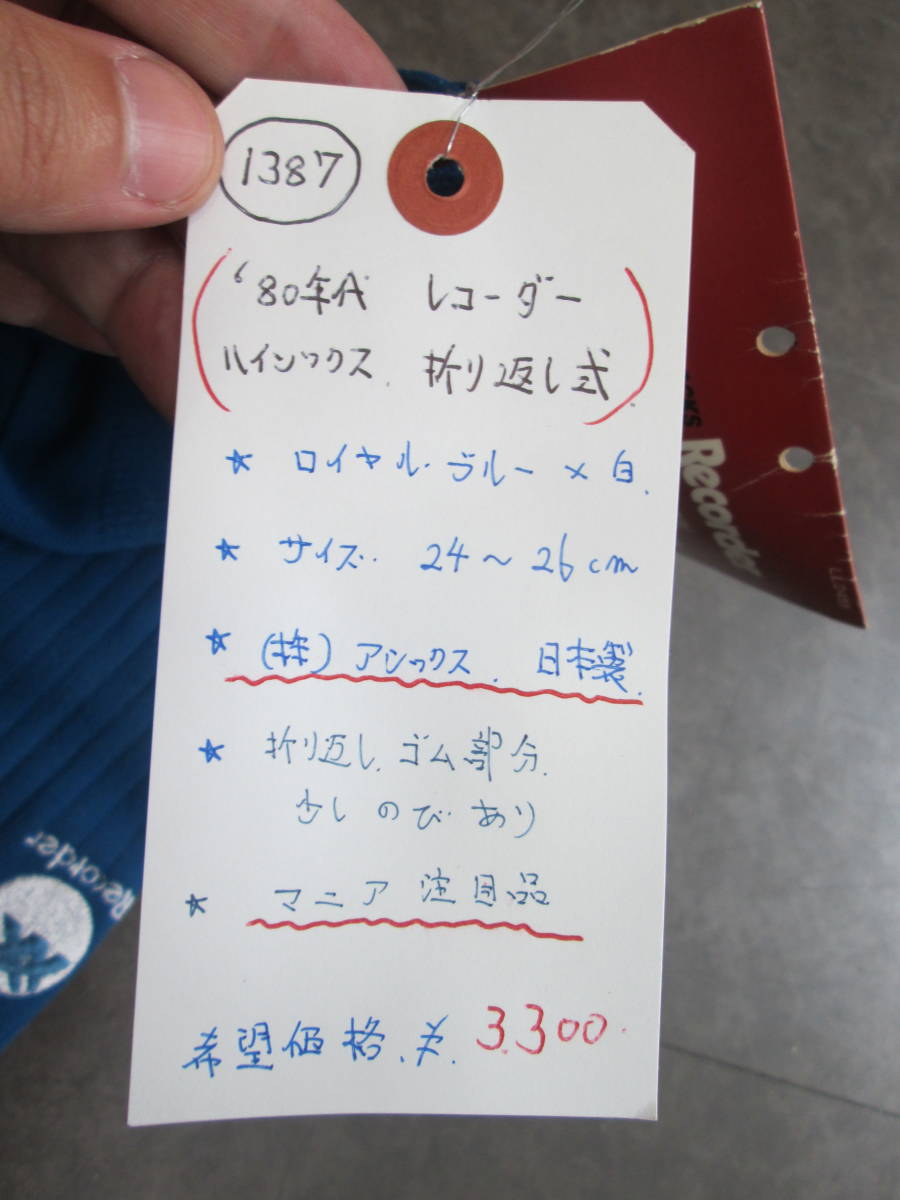 1387
'80年代 レコーダー
ハイソックス. 折り返し式.
★ ロイヤル・ブルー × 白.
★ サイズ. 24～26cm
★ (株) アシックス. 日本製.
★ 折り返し. ゴム部分.
少しのびあり
★ マニア注目品
希望価格.¥. 3.300.
Recorder
Recorder